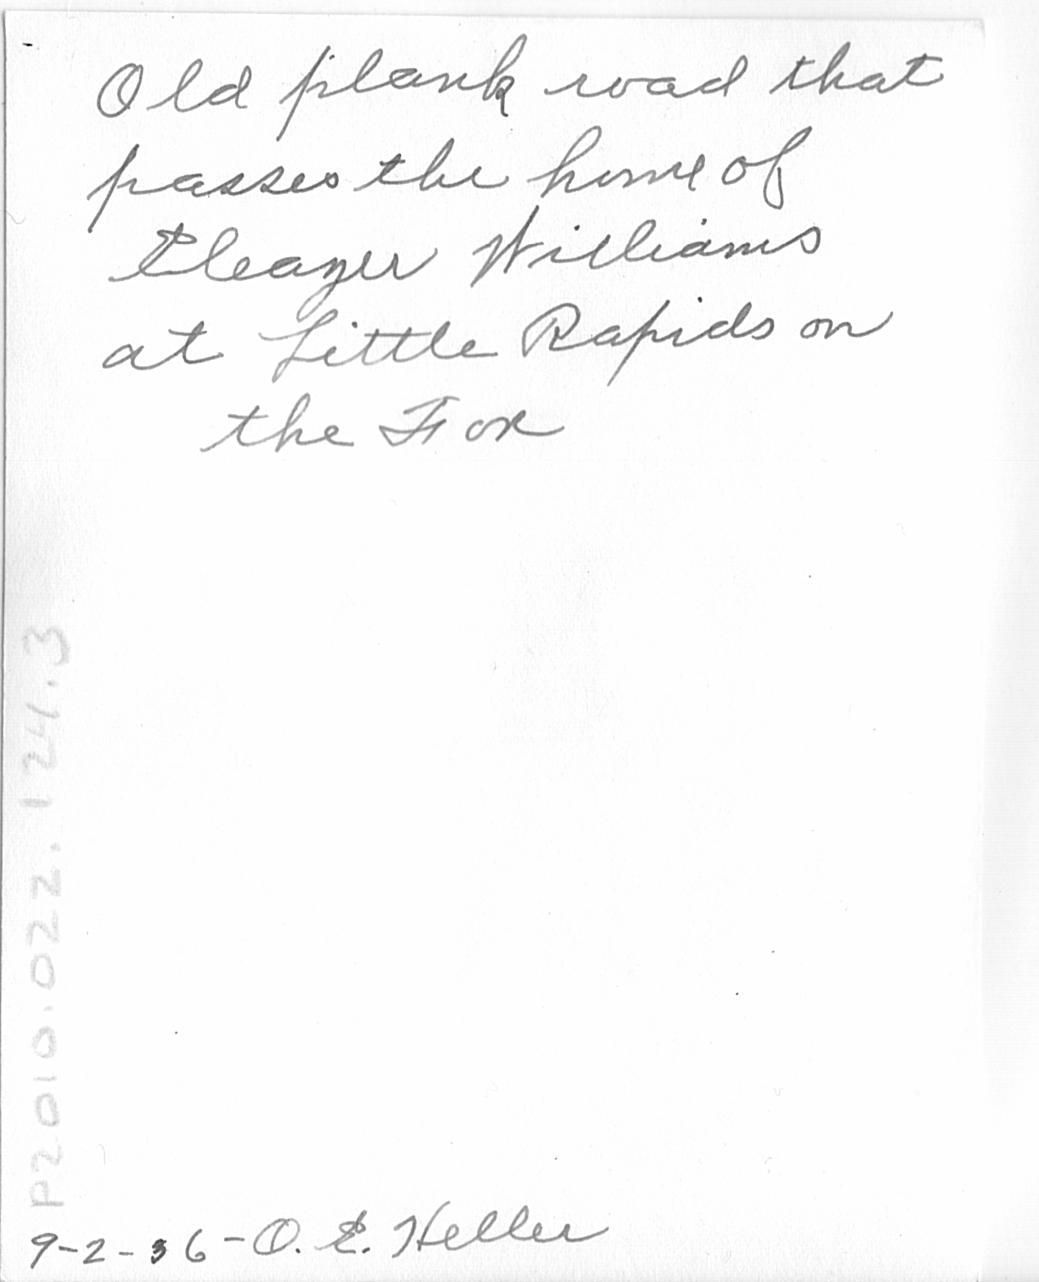 Old plank road that
passes the home of
Eleazer Williams
at Little Rapids on
the Fox
P2010.022.124.3
9-2-36-O. E. Heller